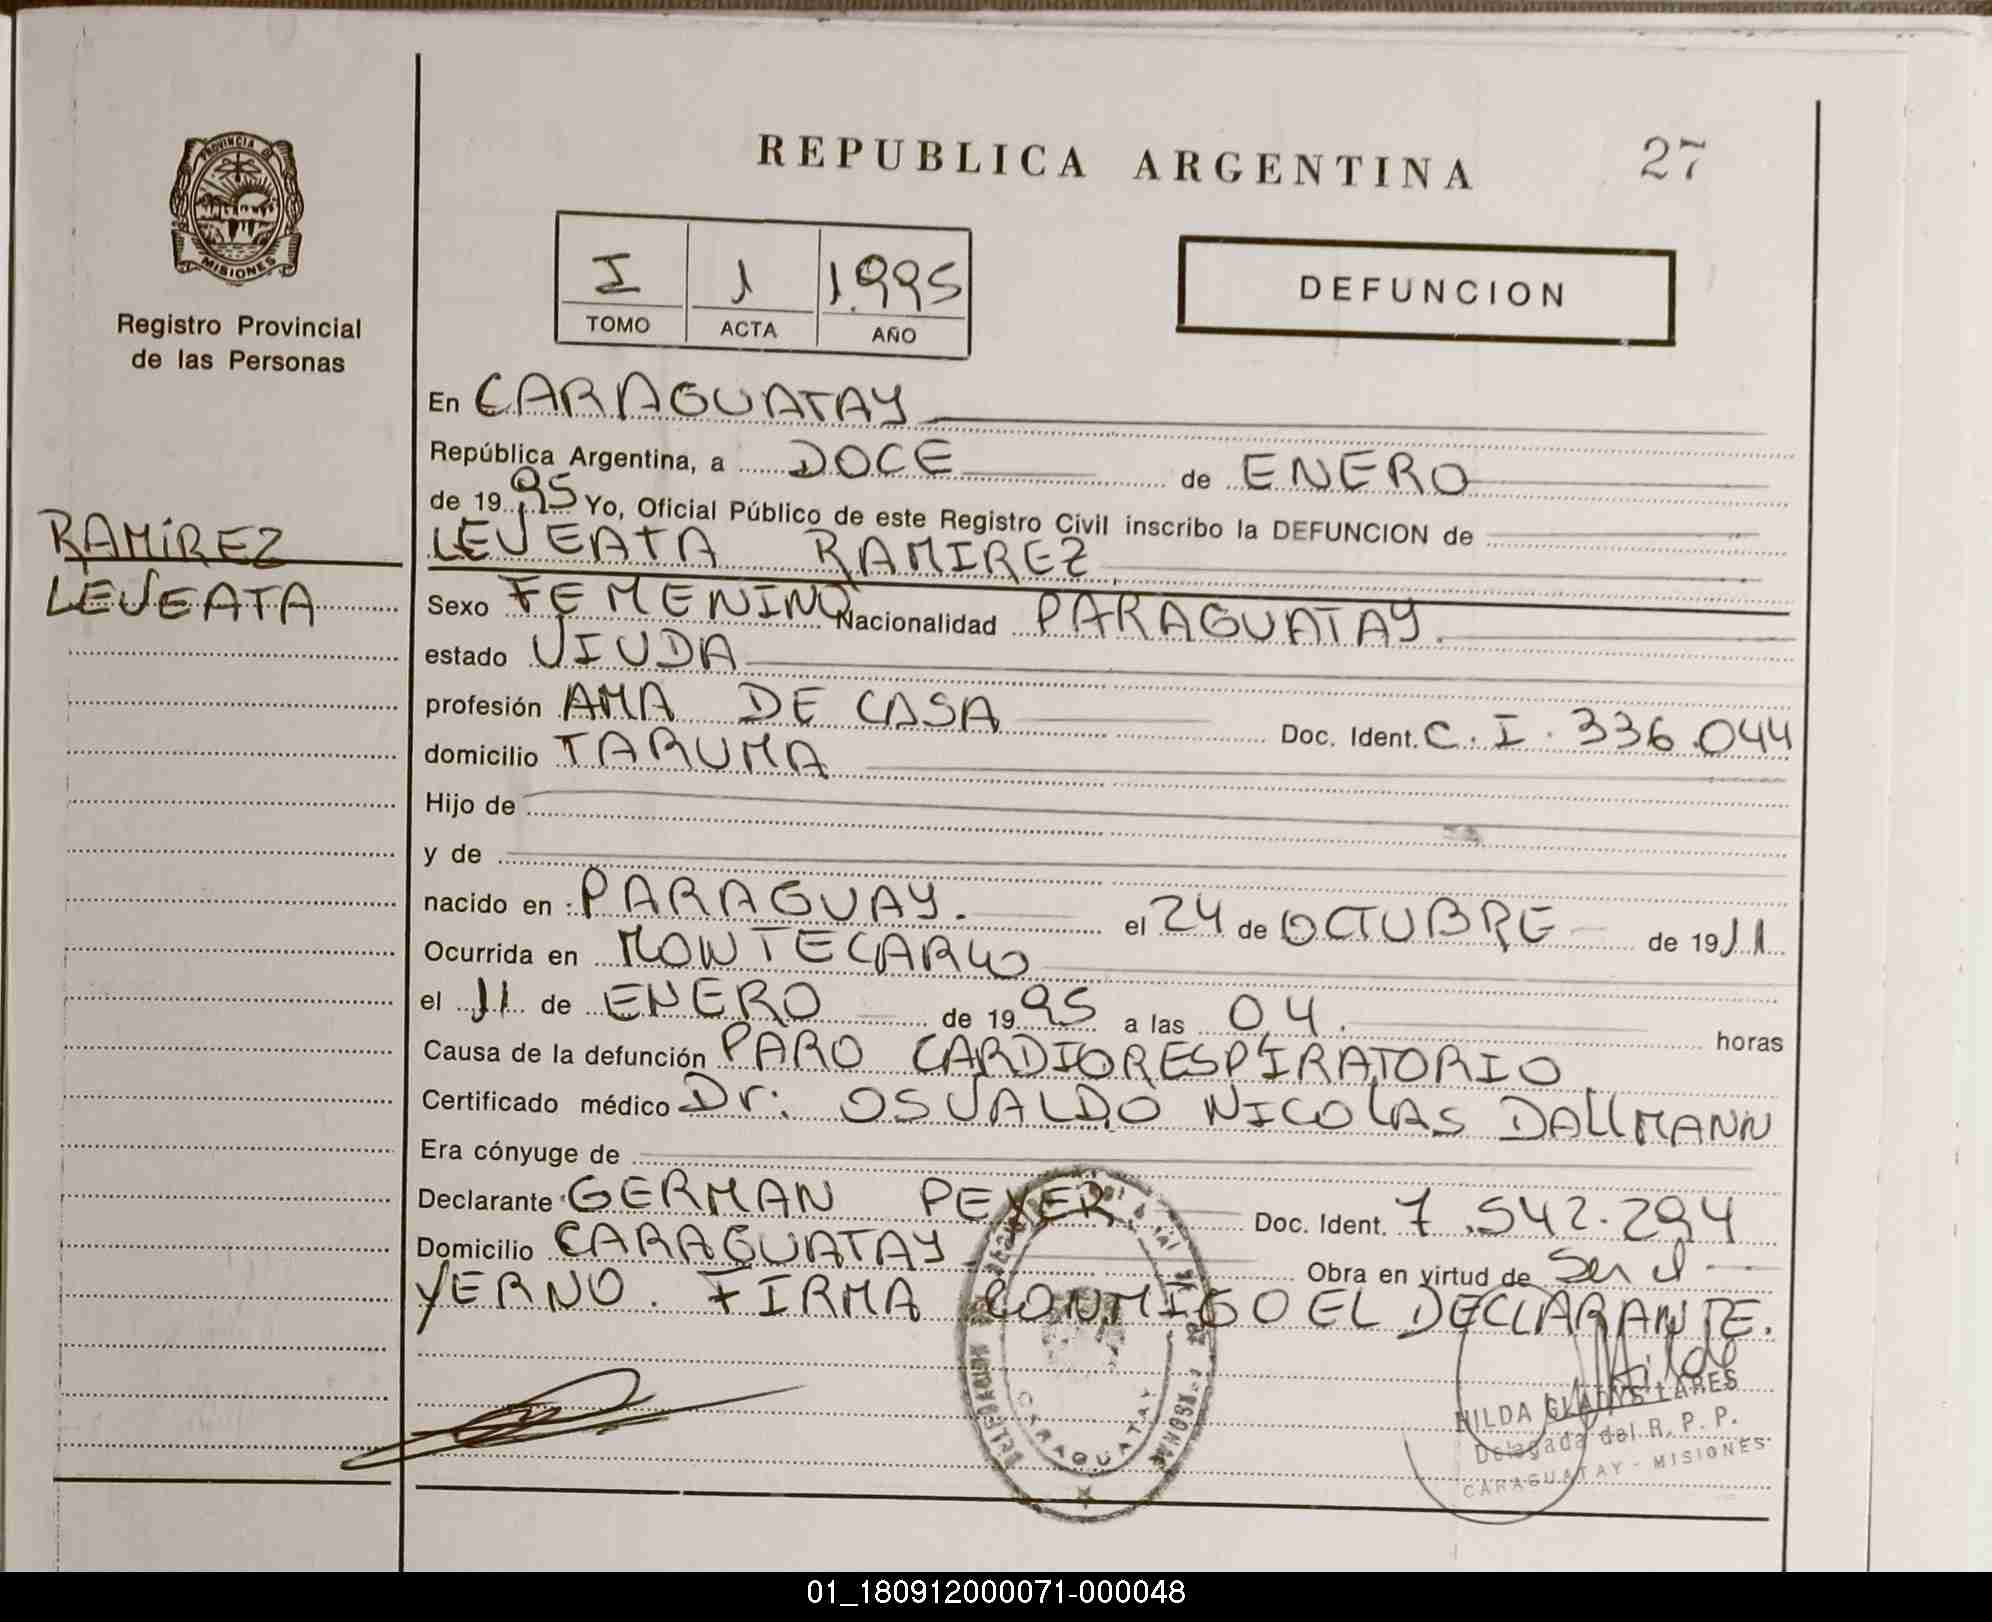 REPUBLICA ARGENTINA
27
PROVINCIA DE
MISIONES
Registro Provincial
de las Personas
I 1 1.995
TOMO ACTA AÑO
DEFUNCION
En CARAGUATAY
República Argentina, a DOCE de ENERO
de 1995 Yo, Oficial Público de este Registro Civil inscribo la DEFUNCION de
RAMÍREZ
LEVEATA
LEVEATA RAMIREZ
Sexo FEMENINO Nacionalidad PARAGUATAY.
estado VIUDA
profesión AMA DE CASA Doc. Ident. C.I. 336.044
domicilio TARUMA
Hijo de
y de
nacido en PARAGUAY. el 24 de OCTUBRE de 1911
Ocurrida en MONTECARLO
el 11 de ENERO de 1995 a las 04. horas
Causa de la defunción PARO CARDIORESPIRATORIO
Certificado médico Dr: OSVALDO NICOLAS DALLMANN
Era cónyuge de
Declarante GERMAN PEXER Doc. Ident. 7.542.294
Domicilio CARAGUATAY Obra en virtud de Ser el
YERNO. FIRMA CONMIGO EL DECLARANTE.
DELEGACION
CARAGUATAY
Hilda
HILDA GLADYS LARES
Delegada del R. P. P.
CARAGUATAY - MISIONES
01_180912000071-000048